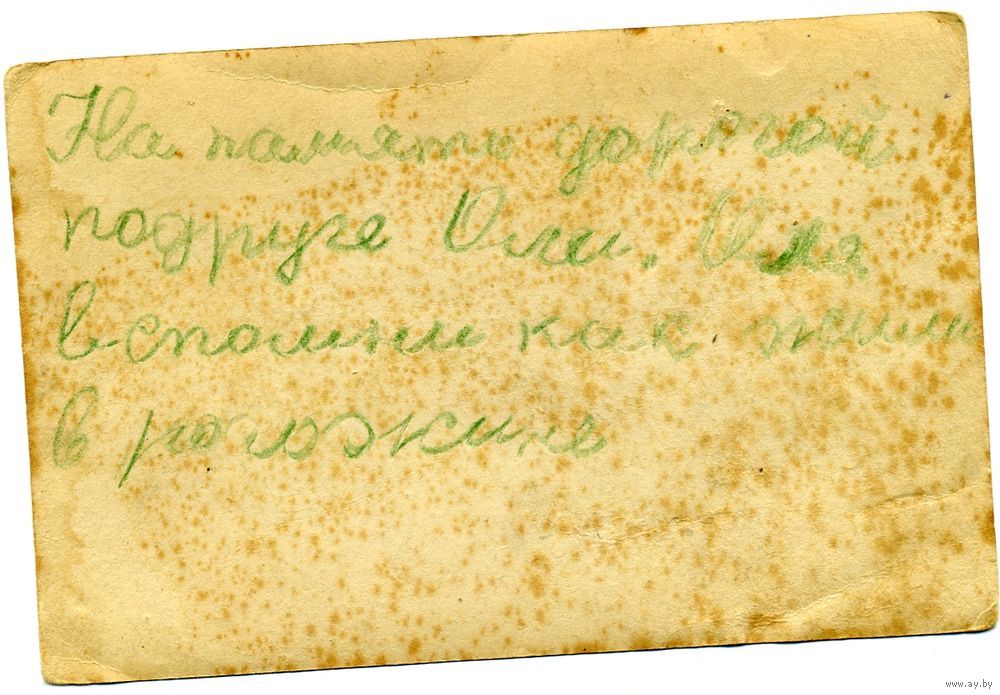 На память дорогой
подруге Оли. Оля
вспомни как жили
в рогожине
www.ay.by